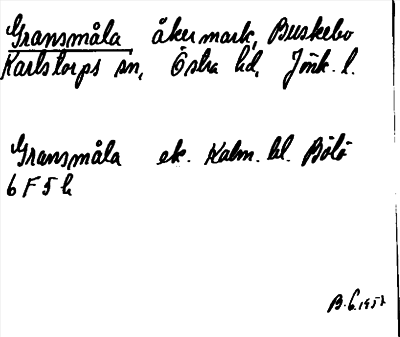 Gransmåla åkermark, Buskebo
Karlstorps sn, Östra hd, Jönk. l.
Gransmåla ek. Kalm. bl. Bölö
6 F 5 h
B. G. 1957